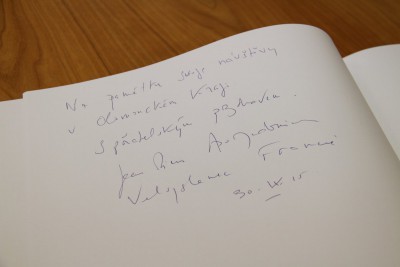 Na památku svojí návštěvy
v Olomouckém kraji
s přátelským pozdravem.
Jean Pierre Asvazadourian
Velvyslanec Francie
30. IX. 15